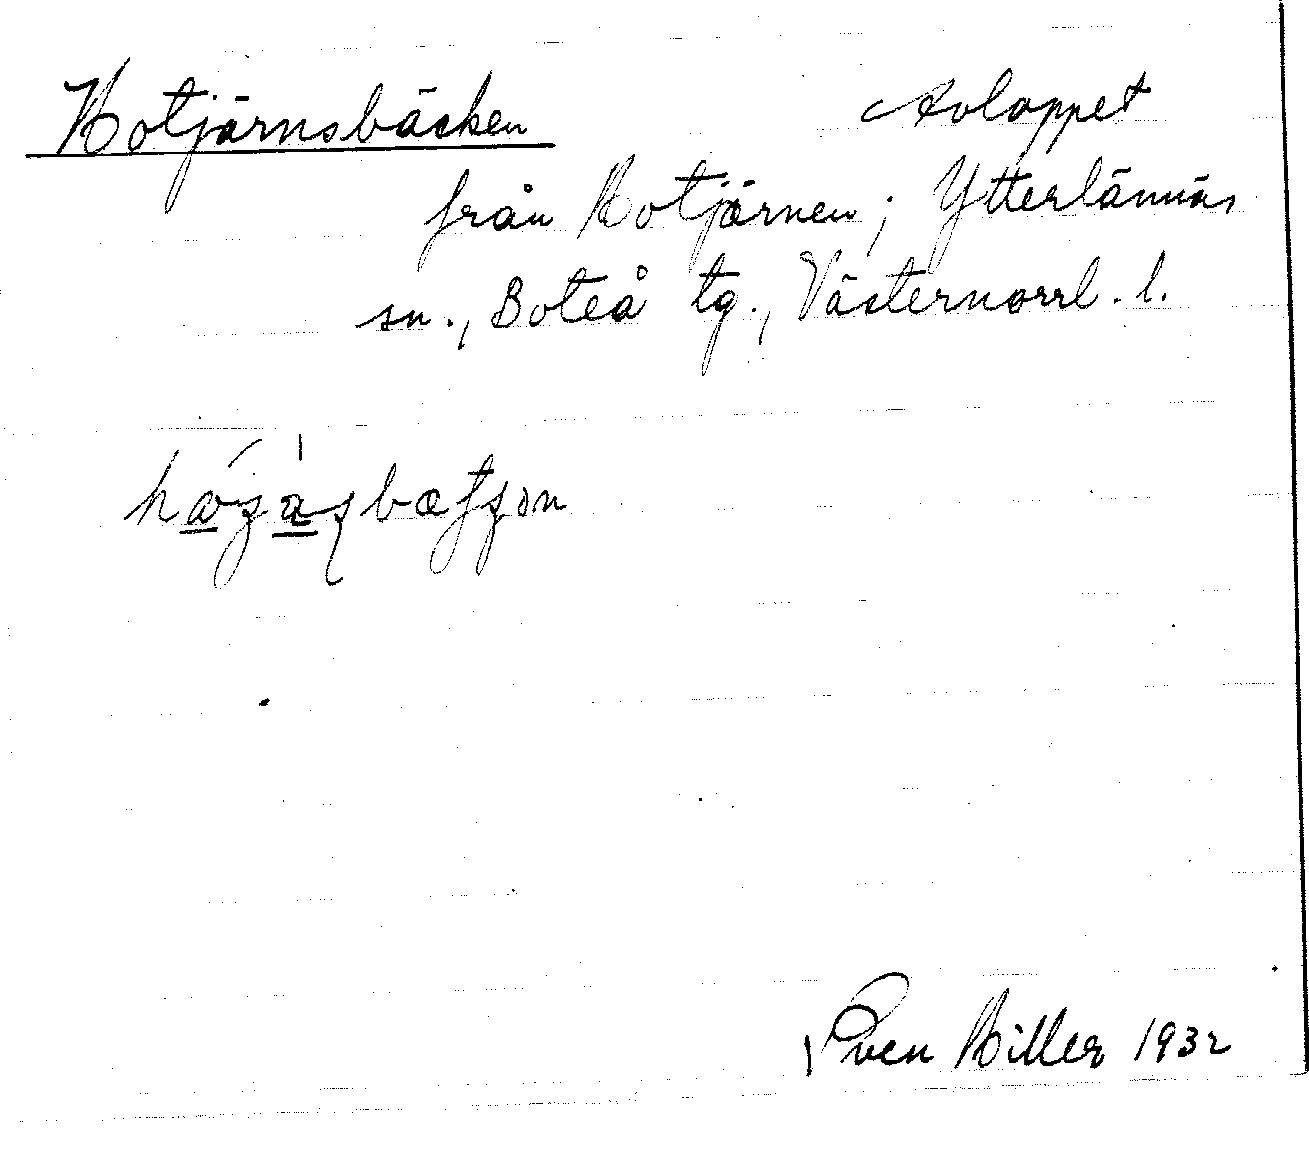 Hotjärnsbäcken Avloppet
från Hotjärnen; Ytterlännäs
sn., Boteå tg., Västernorrl. l.
Sven Hiller 1932